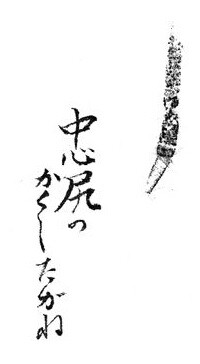 中心尻の
かくしたがね